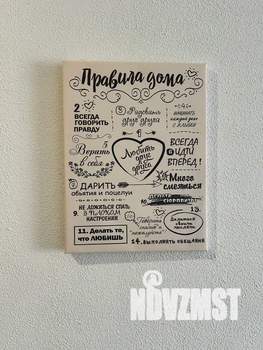 Правила дома
2
ВСЕГДА
ГОВОРИТЬ
ПРАВДУ
5
Радовать
друг друга
4.
начинать
каждый день
с улыбки
5
Верить
в себя
1
Любить
друг
друга
ВСЕГДА
ИДТИ
ВПЕРЕД!
ДАРИТЬ
объятия и поцелуи
Много
смеяться
НЕ ЛОЖИТЬСЯ СПАТЬ
9. В ПЛОХОМ
НАСТРОЕНИИ
Говорить
спасибо и
пожалуйста
11. Делать то,
что ЛЮБИШЬ
14. ВЫПОЛНЯТЬ ОБЕЩАНИЯ
NDVZMST